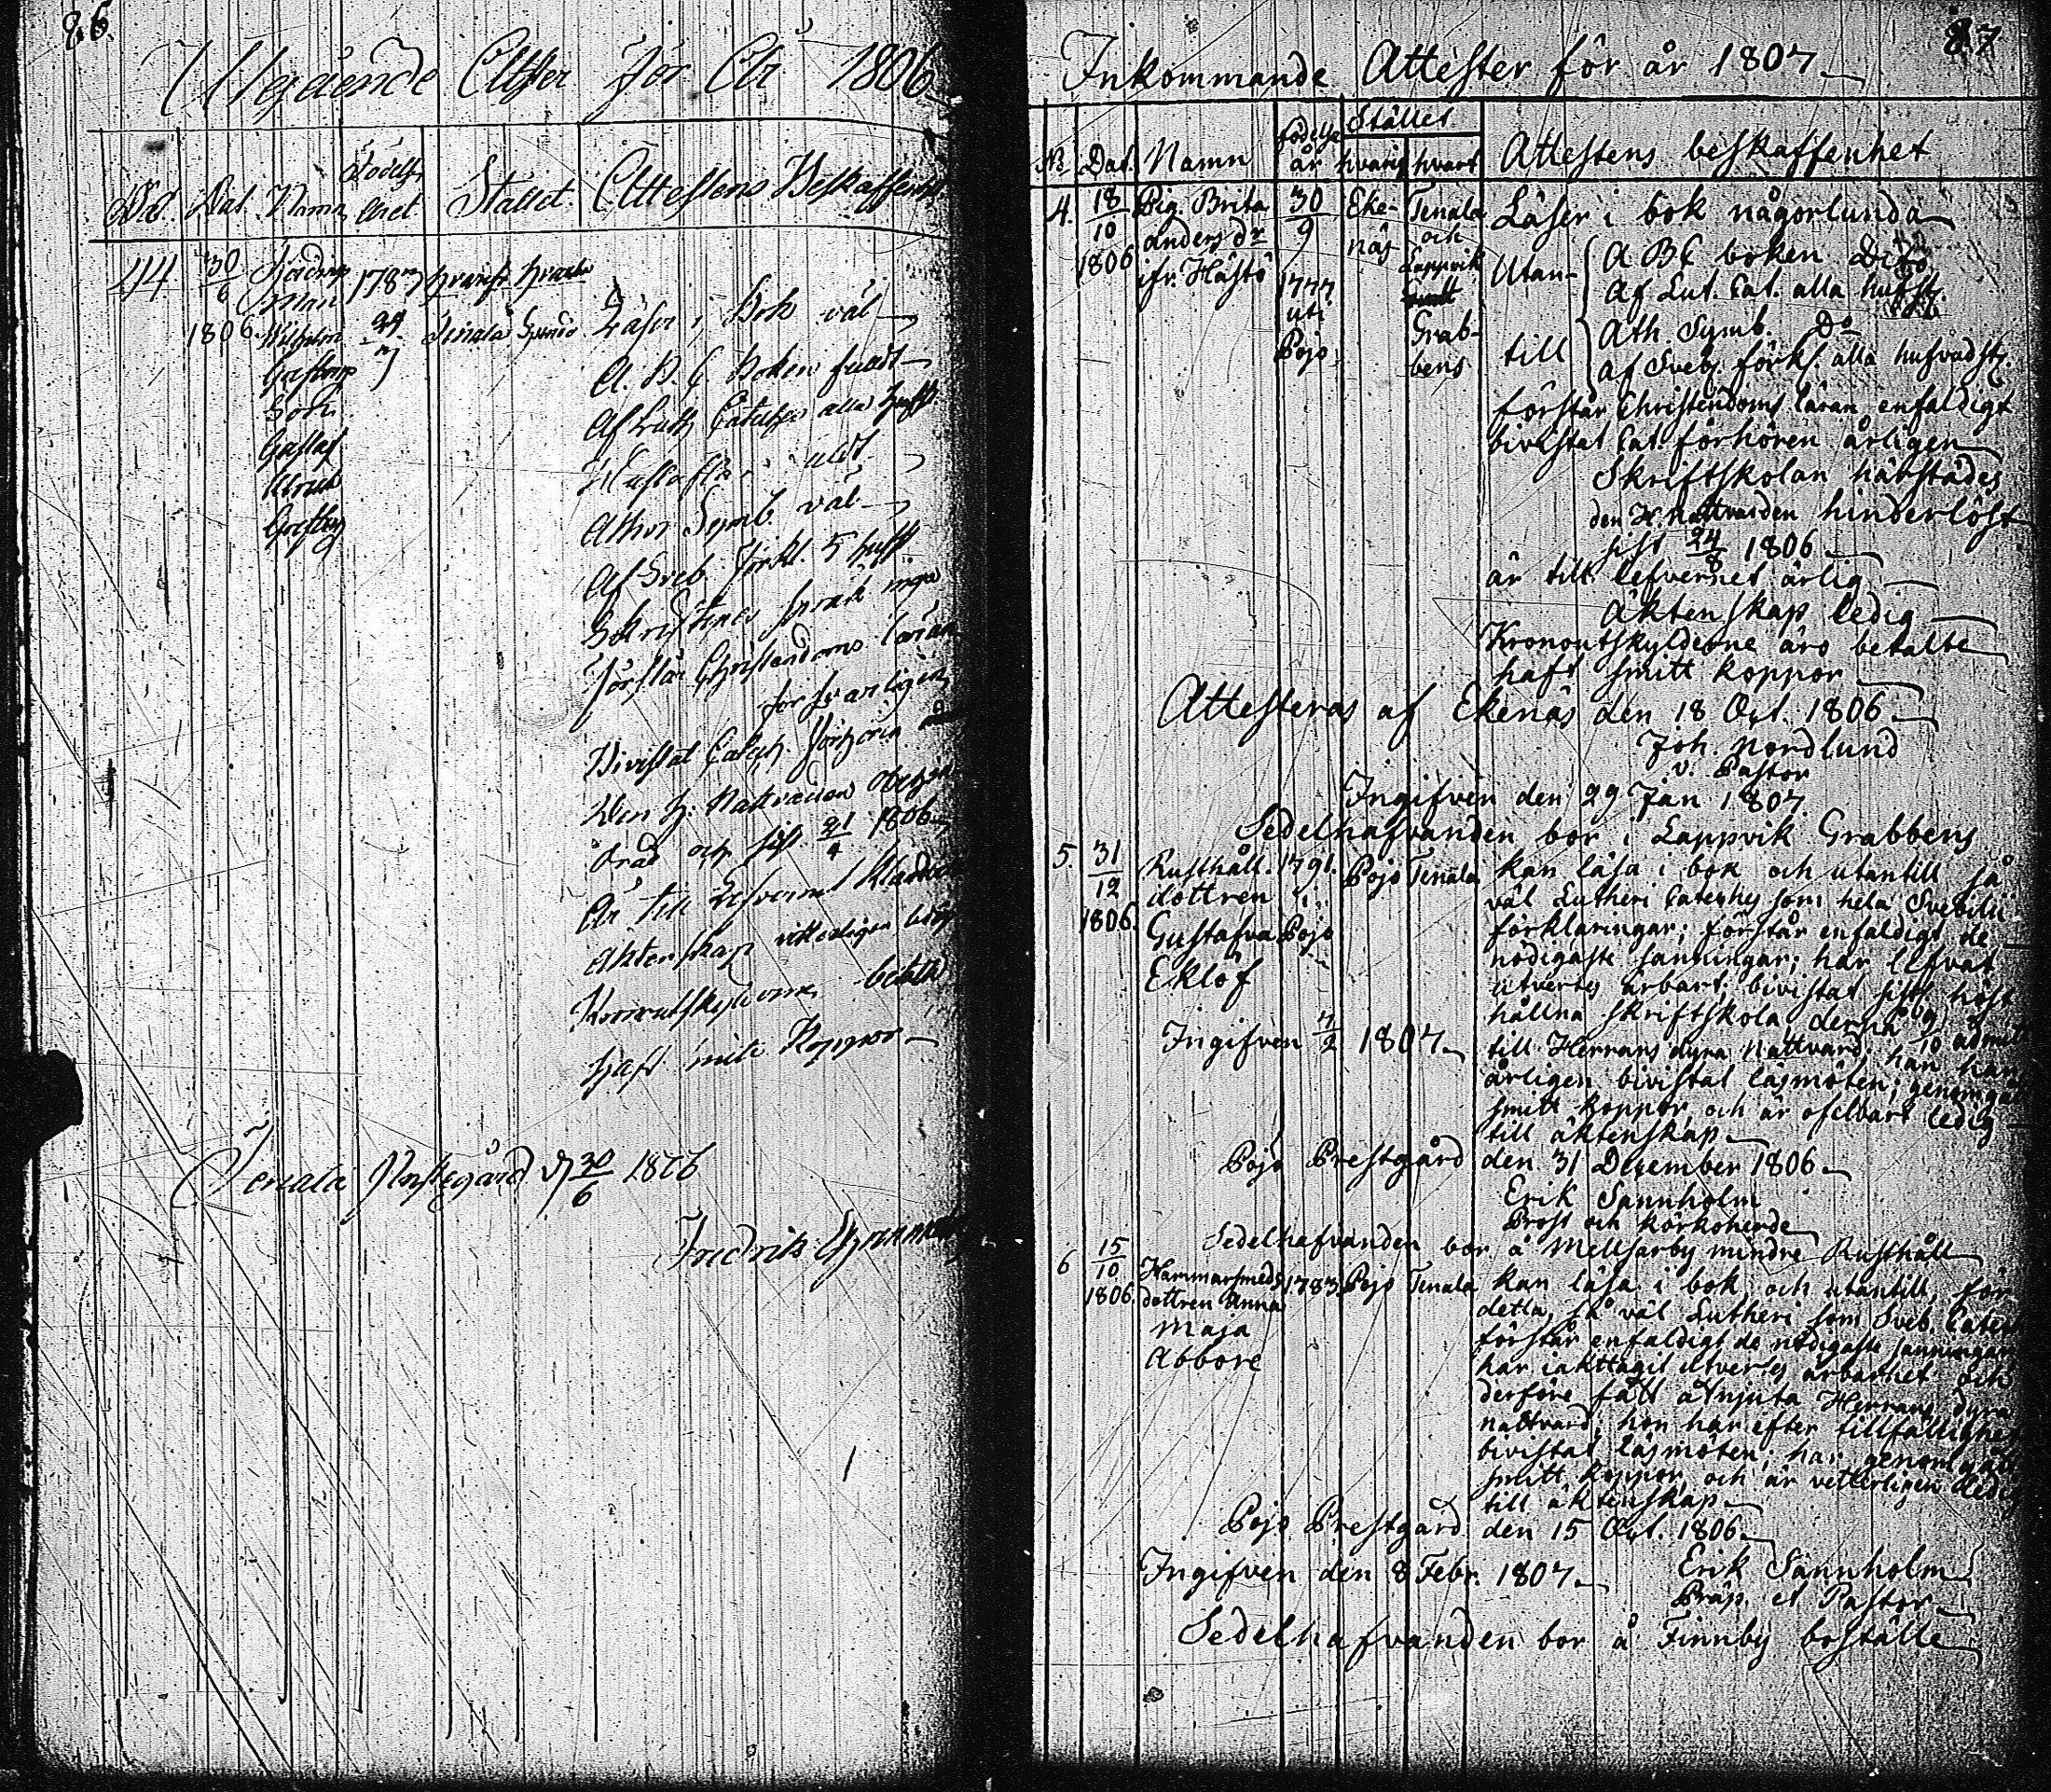 86.
Utgående Atter för År 1806
No. Dat. Namn Födelse Året Stället. Attestens Beskaffenhet
44 30/6 1787 hvarifr. hvart
man
1806. Wilhelm 24/7 Tenala
Gustaf
Läser i Bok väl
A. B. C. Boken fullt
Af Luth Catechs alla hufst.
Hustafla
Athos Symb. väl
Af Sveb. förkl. 5 hufst
Skriftenes språk inga
Förstår Christendoms läran
försvarligen
Bivistat Catech. förhören
Den H. Nattvarden
och sist 21/4 1806
Är till Lefvernet
Äktenskap vitterligen ledig
Kronoutskylderne betalte
Haft mitt Koppor
Tenala Prestegård d 30/6 1806
Fredrik
87
Inkommande Attester för år 1807
No Dat. Namn födelse år Stället hvarif. hvart Attestens beskaffenhet
4. 18/10 1806 Pig. Brita Anders dr ifr. Hästö 30/9 1777 uti Pojo Eke-näs Tenala och Lappvik Grab-bens
Läser i bok någorlunda
Utan-till
A B C boken Dito
Af Lut. Cat. alla hufst.
Ath. Symb. Do
af Sveb. förkl. alla hufvudst.
förstår Christendoms läran enfaldigt
bivistat Cat. förhören årligen
Skriftskolan härstädes
den H. nattvarden hinderlöst
sist 24/8 1806
är till lefvernet ärlig
Äktenskap ledig
Kronoutskylderne äro betalte
haft smitt koppor
Attesteras af Ekenäs den 18 Oct. 1806
Joh. Nordlund
v. Pastor
Ingifven den 29 Jan 1807
Sedelhafvanden bor i Lappvik Grabbens
5. 31/12 1806. Rusthåll. dottren Gustafva Eklöf 1791. i Pojo Pojo Tenala
kan läsa i bok och utantill så
väl Lutheri Cateches som hela Svebilii
förklaringar; förstår enfaldigt de
nödigaste sanningar; har lefvat
utvertes ärbart; bivistat sistl. höst
hållna skriftskola, derpå admit
till Herrans dyra Nattvard; han har
årligen bivistat läsmöten; genomgått
smitt koppor och är ofelbart ledig
till äktenskap
Ingifven 7/2 1807
Pojo Prestgård den 31 December 1806
Erik Sannholm
Prost och körkoherde
Sedelhafvanden bor å Mellsarby mindre Rusthåll
6 15/10 1806. Hammarsmeds dottren Anna Maja Abbore 1783. Pojo Tenala
kan läsa i bok och utantill, för
detta, så väl Lutheri som Sveb. Catech
förstår enfaldigt de nödigaste sanningar
har iakttagit utvertes ärbarhet och
derföre fått åtnjuta Herrans dyra
nattvard; hon har efter tillfällighet
bivistat läsmöten; har genomgått
smitt koppor, och är vetterligen ledig
till äktenskap
Pojo Prestgård den 15 Oct. 1806
Ingifven den 8 Febr. 1807
Erik Sannholm
Präp. et Pastor
Sedelhafvanden bor å Finnby boställe